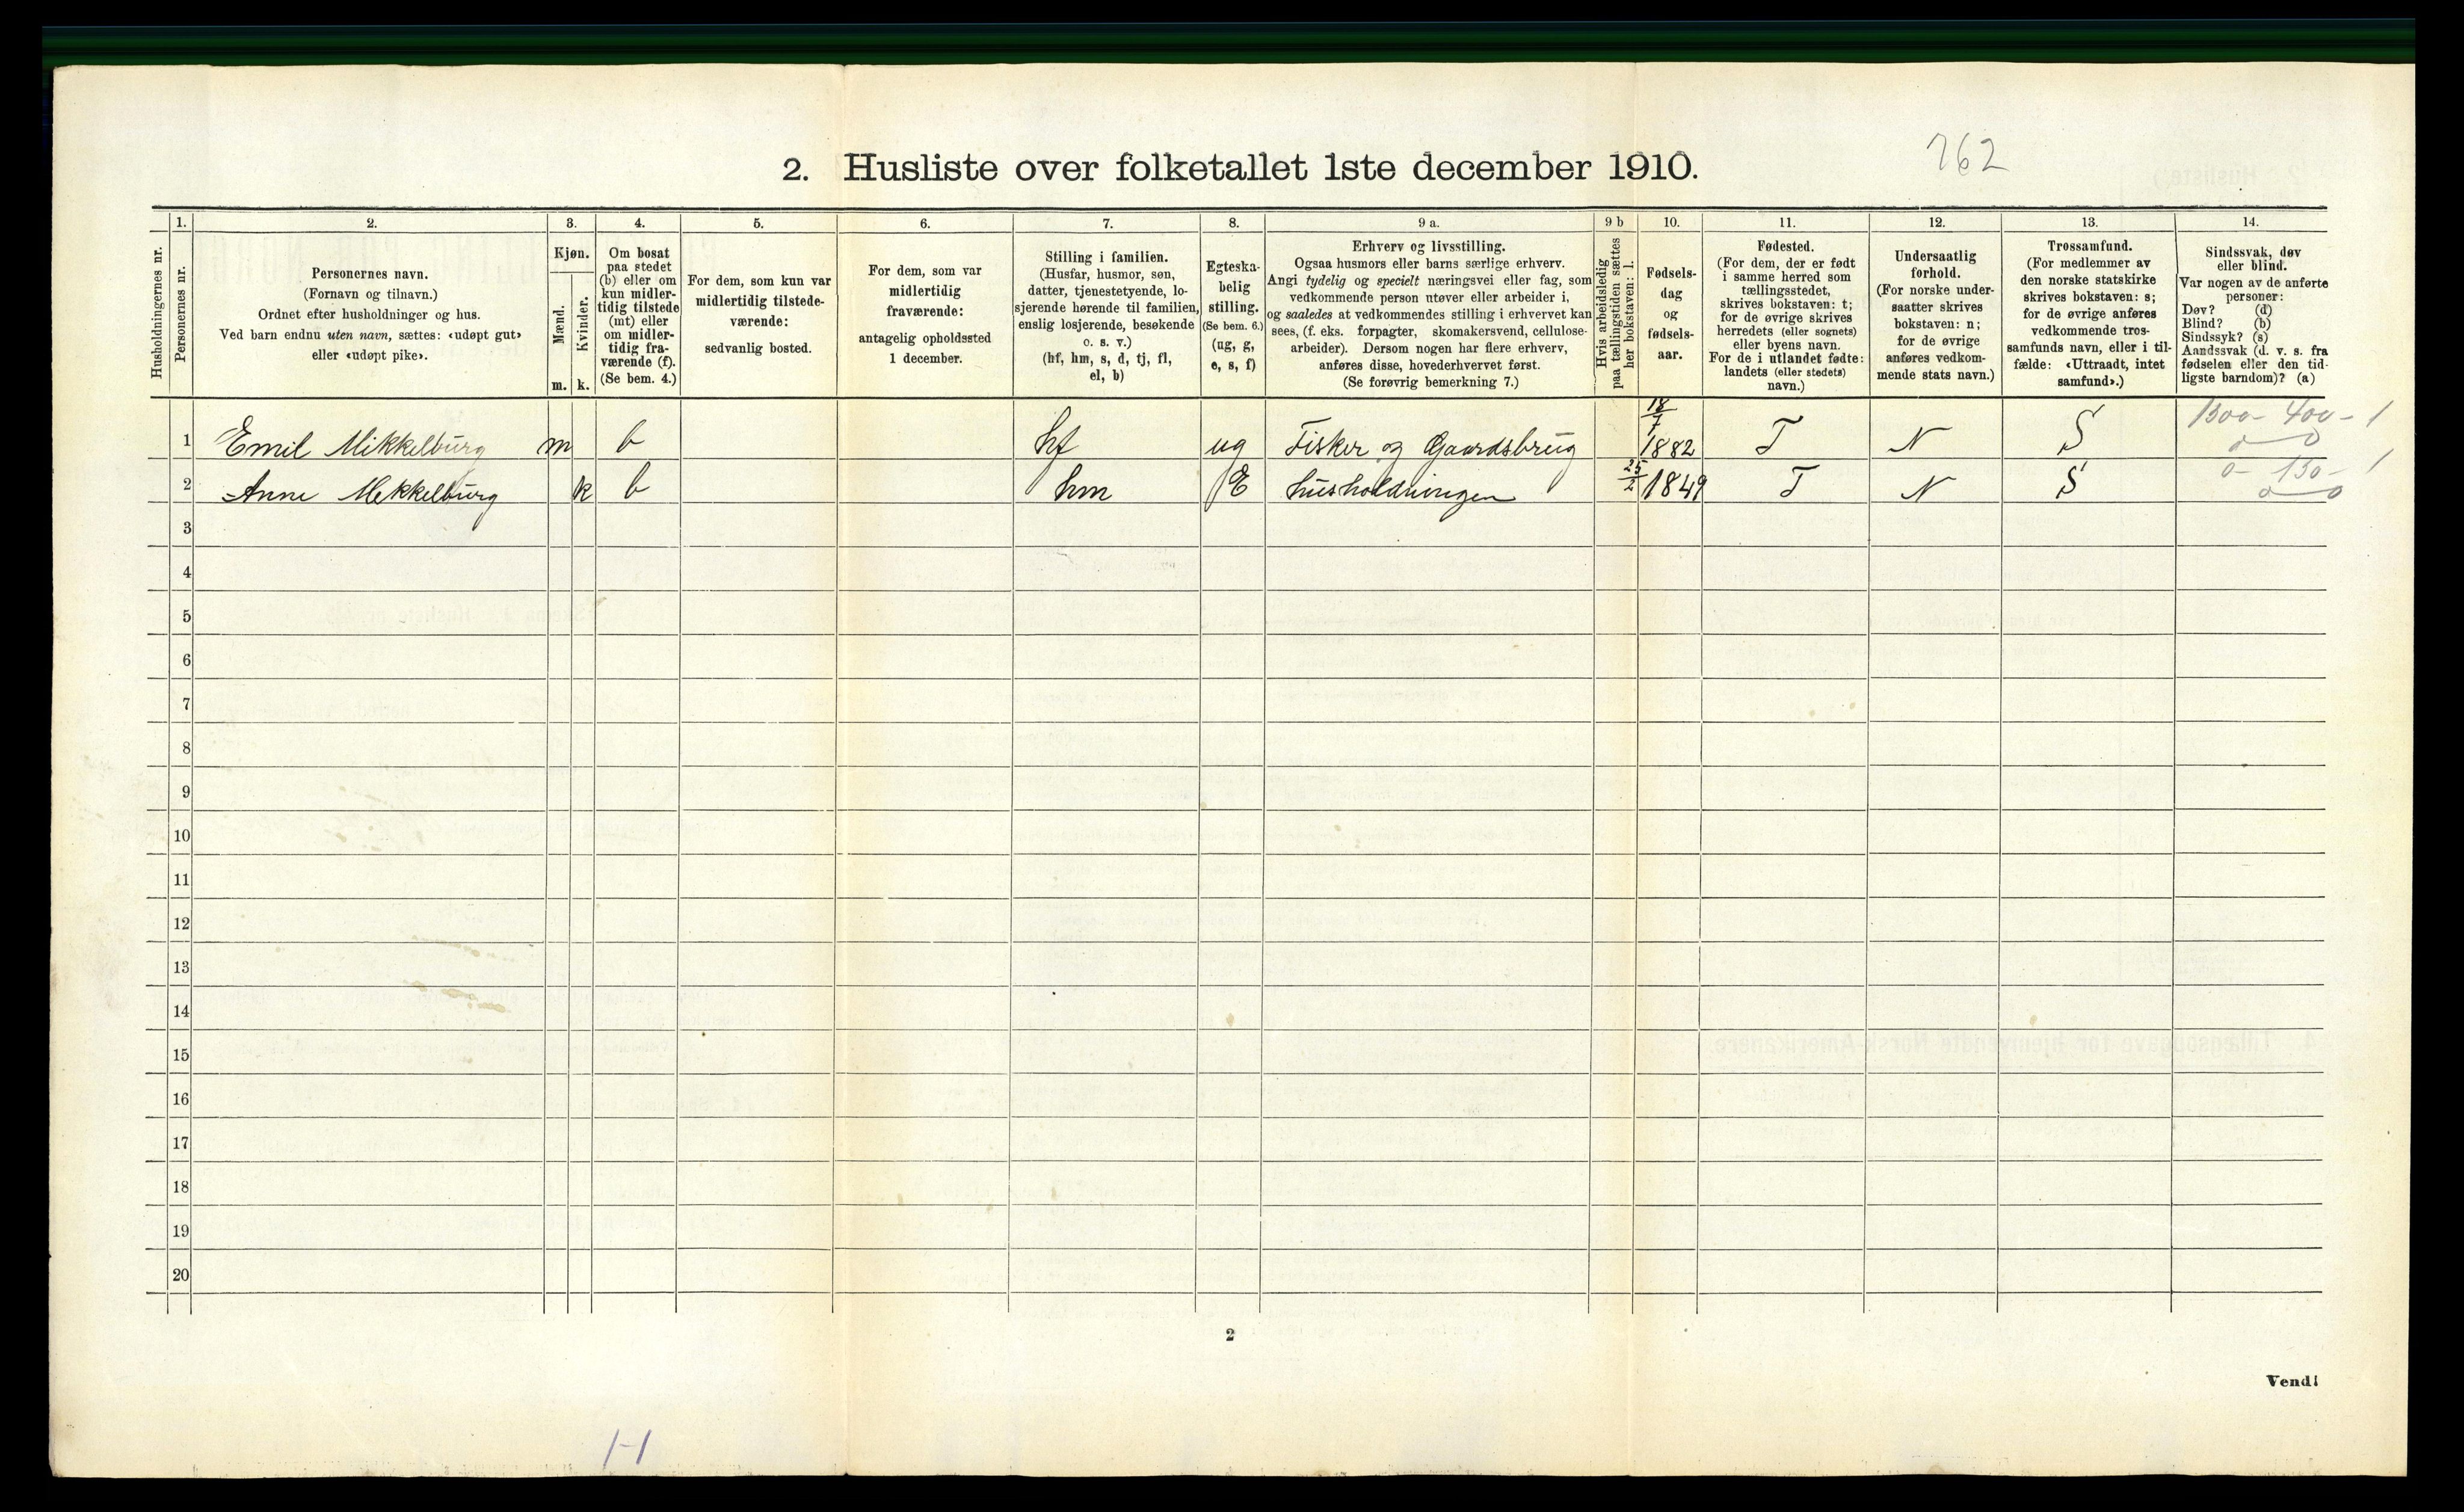 162
2. Husliste over folketallet 1ste december 1910.
Husholdningernes nr.
1.
Personernes nr.
2.
Personernes navn.
(Fornavn og tilnavn.)
Ordnet efter husholdninger og hus.
Ved barn endnu uten navn, sættes: «udøpt gut»
eller «udøpt pike».
3.
Kjøn.
Mænd.
Kvinder.
m. k.
4.
Om bosat
paa stedet
(b) eller om
kun midler-
tidig tilstede
(mt) eller
om midler-
tidig fra-
værende (f).
(Se bem. 4.)
5.
For dem, som kun var
midlertidig tilstede-
værende:
sedvanlig bosted.
6.
For dem, som var
midlertidig
fraværende:
antagelig opholdssted
1 december.
7.
Stilling i familien.
(Husfar, husmor, søn,
datter, tjenestetyende, lo-
sjerende hørende til familien,
enslig losjerende, besøkende
o. s. v.)
(hf, hm, s, d, tj, fl,
el, b)
8.
Egteska-
belig
stilling.
(Se bem. 6.)
(ug, g,
e, s, f)
9 a.
Erhverv og livsstilling.
Ogsaa husmors eller barns særlige erhverv.
Angi tydelig og specielt næringsvei eller fag, som
vedkommende person utøver eller arbeider i,
og saaledes at vedkommendes stilling i erhvervet kan
sees, (f. eks. forpagter, skomakersvend, cellulose-
arbeider). Dersom nogen har flere erhverv,
anføres disse, hovederhvervet først.
(Se forøvrig bemerkning 7.)
9 b
Hvis arbeidsledig
paa tællingstiden sættes
her bokstaven: l.
10.
Fødsels-
dag
og
fødsels-
aar.
11.
Fødested.
(For dem, der er født
i samme herred som
tællingsstedet,
skrives bokstaven: t;
for de øvrige skrives
herredets (eller sognets)
eller byens navn.
For de i utlandet fødte:
landets (eller stedets)
navn.)
12.
Undersaatlig
forhold.
(For norske under-
saatter skrives
bokstaven: n;
for de øvrige
anføres vedkom-
mende stats navn.)
13.
Trossamfund.
(For medlemmer av
den norske statskirke
skrives bokstaven: s;
for de øvrige anføres
vedkommende tros-
samfunds navn, eller i til-
fælde: «Uttraadt, intet
samfund».)
14.
Sindssvak, døv
eller blind.
Var nogen av de anførte
personer:
Døv? (d)
Blind? (b)
Sindssyk? (s)
Aandssvak (d. v. s. fra
fødselen eller den tid-
ligste barndom)? (a)
1 Emil Mikkelburg m b hf ug Fisker og Gaardsbrug 18/7 1882 T N S 1300- 400- 1
2 Anne Mekkelburg k b hm E husholdningen 25/2 1849 T N S 0- 130- 1
3
4
5
6
7
8
9
10
11
12
13
14
15
16
17
18
19
20
2
Vend!